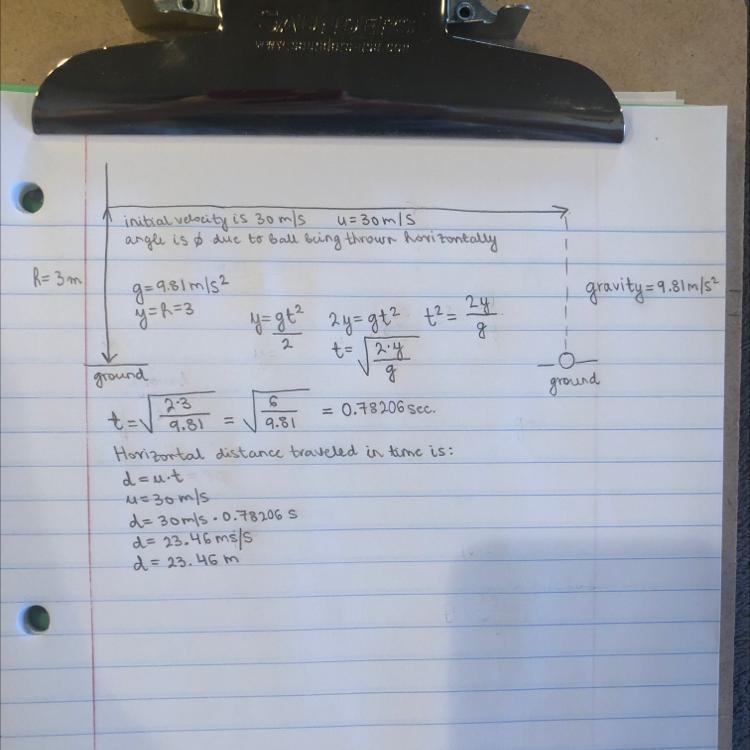 SAUNDERS
initial velocity is 30 m/s u = 30 m/s
angle is ∅ due to ball being thrown horizontally
h = 3 m
g = 9.81 m/s²
gravity = 9.81 m/s²
y = h = 3
y = gt²/2 2y = gt² t² = 2y/g
t = √(2·y/g)
ground
ground
t = √(2·3/9.81) = √(6/9.81) = 0.78206 sec.
Horizontal distance traveled in time is:
d = u·t
u = 30 m/s
d = 30 m/s · 0.78206 s
d = 23.46 ms/s
d = 23.46 m